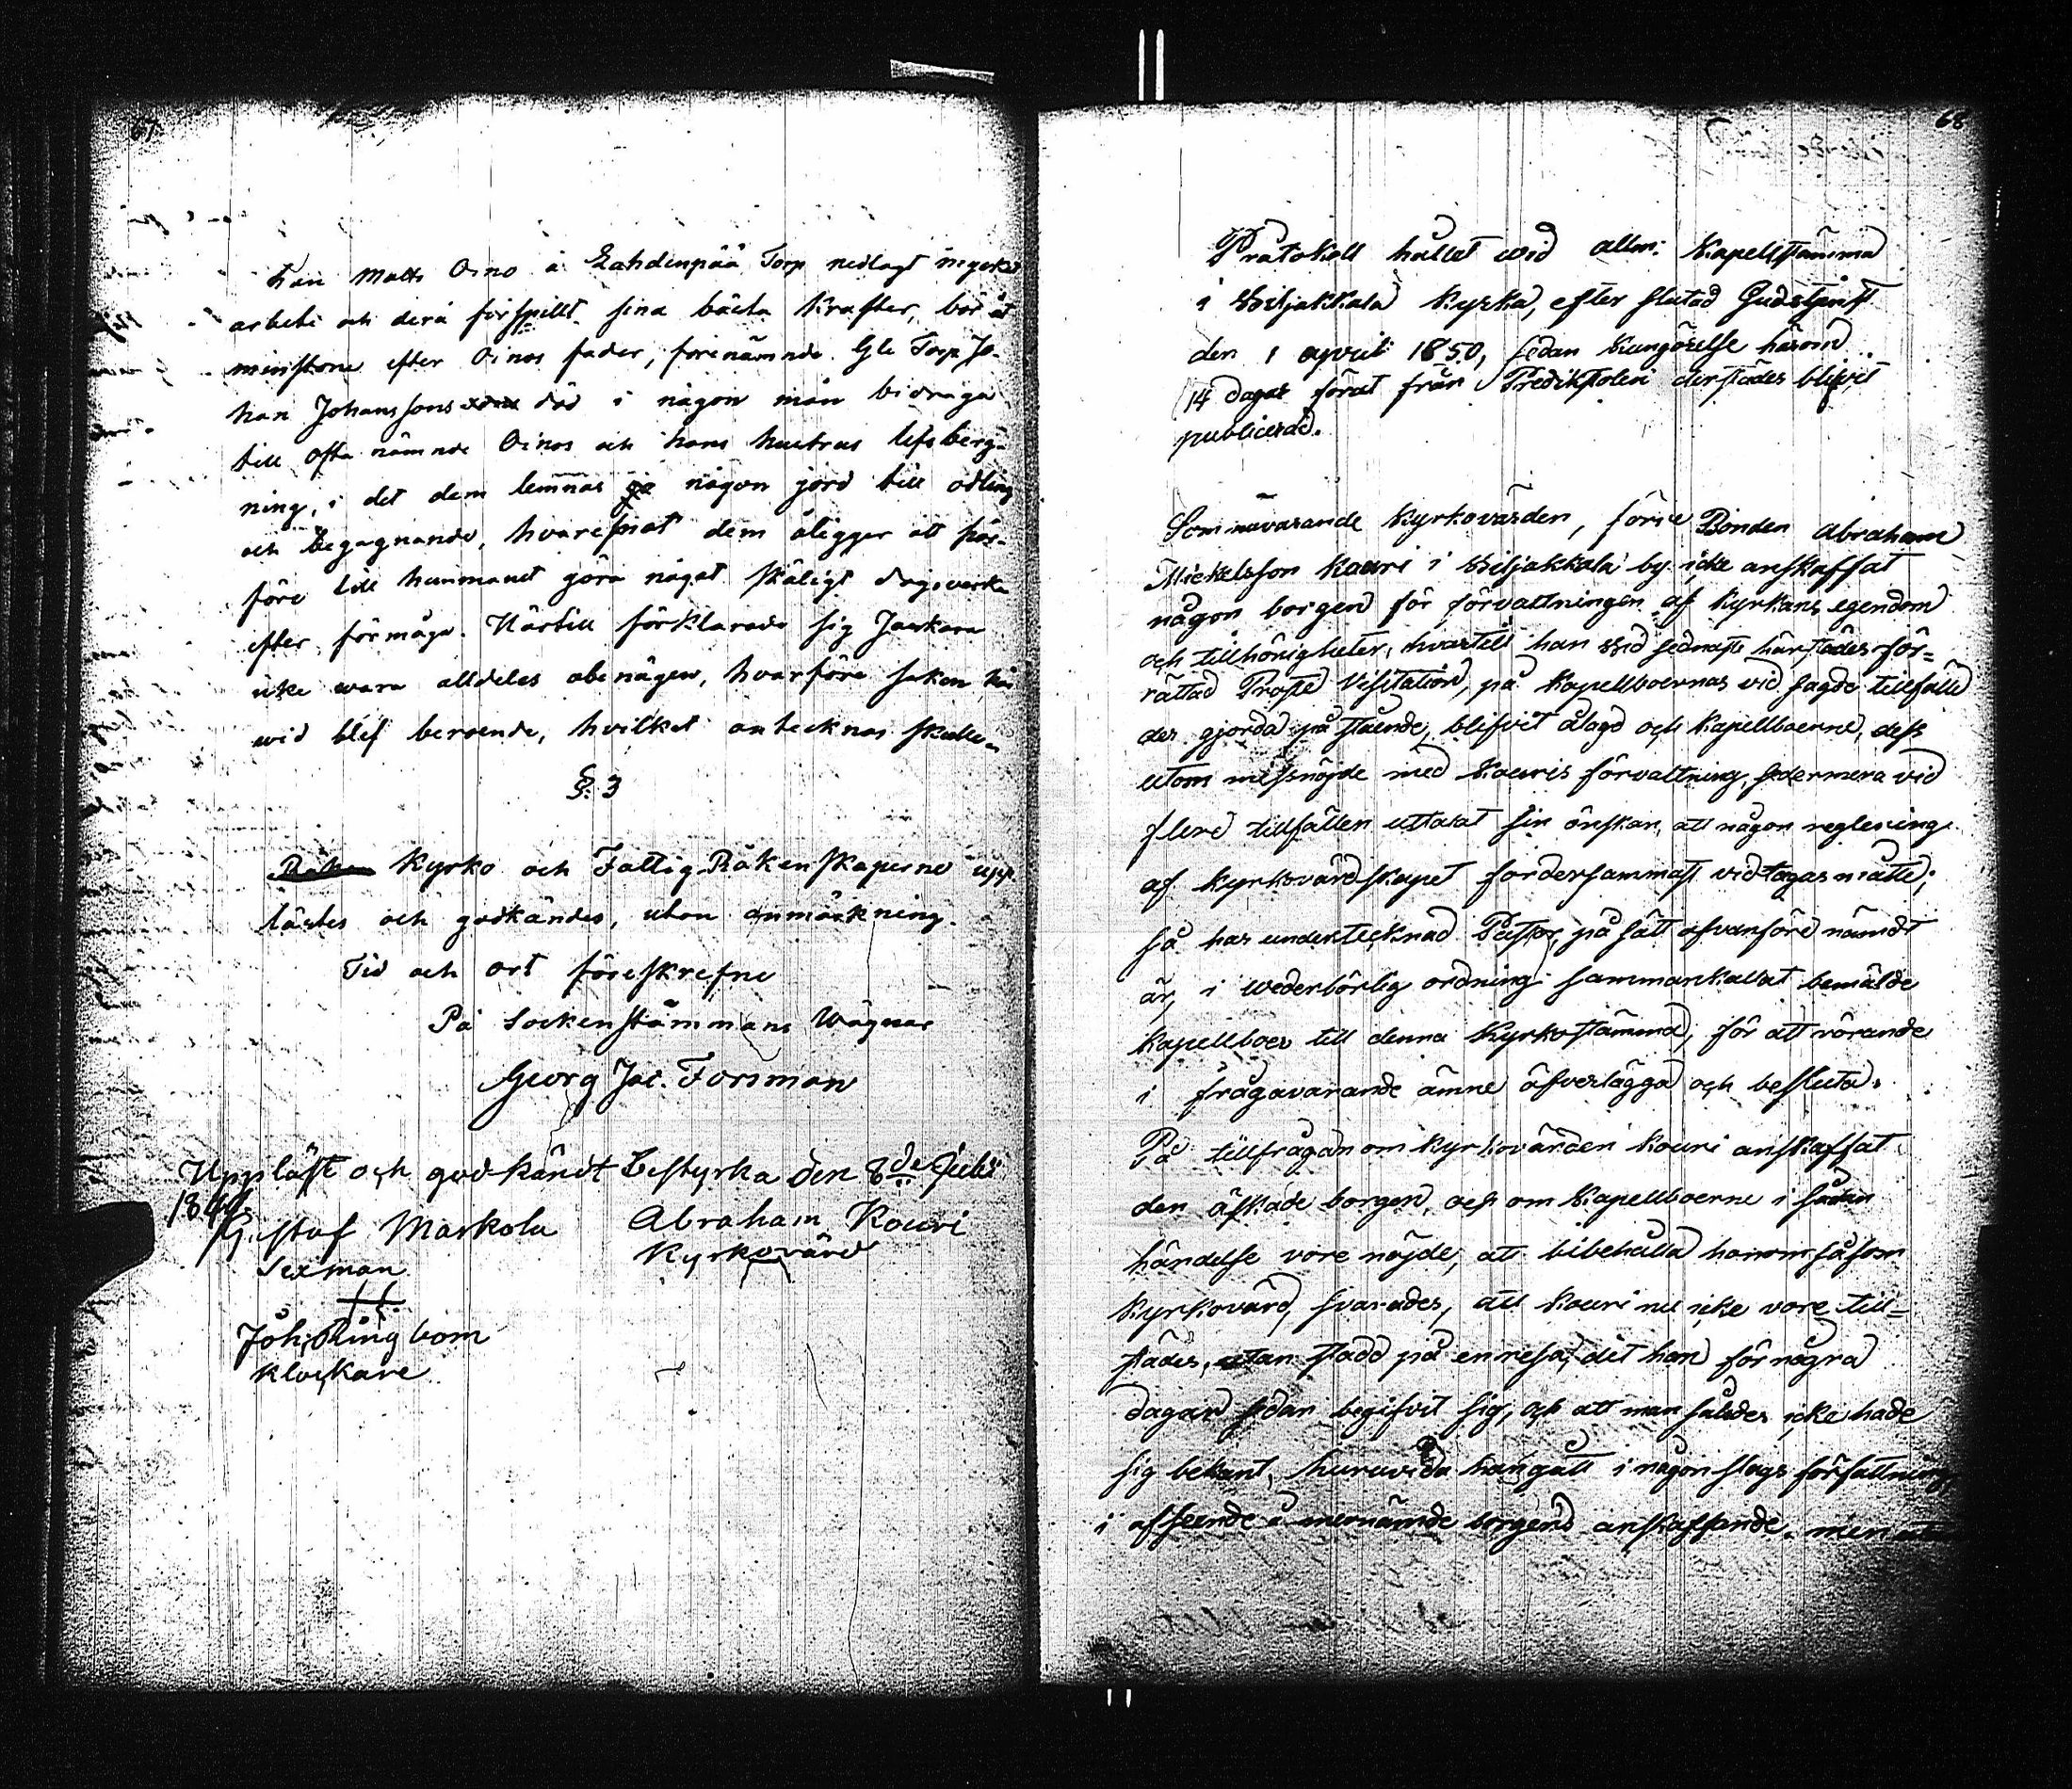 67
han Matts Oino å Lahdenpää Torp nedlagt mycket
arbete och derå förspillt sina bästa Krafter, bör åt
minstone efter Oinos fader, förenämnde Gle Torp Jo-
han Johanssons död i någon mån bidraga
till ofta nämnde Oinos och hans hustrus lifsberg-
ning, i det dem lemnas någon jord till odling
och begagnande, hvaremot dem åligger att
före till hemmanet göra något skäligt dagsverke
efter förmåga. Härtill förklarade sig Jaskara
icke wara alldeles obenägen, hvarföre saken här
wid blef beroende, hvilket antecknas skulle.
§. 3
Kyrko och Fattig Räkenskaperne upp-
lästes och godkändes, utan anmärkning.
Tid och ort föreskrefne
På Sockenstämmans Wägnar
Georg Jac. Forsman
Uppläst och godkändt bestyrka den 8de Julii
1849.
Gustaf Markola Abraham Kouri
Sexman Kyrkovärd
Joh: Ringbom
Klockare
68
Protokoll hållet wid allm: Kapellstämma
i Wiljakkala Kyrka, efter slutad Gudstjenst
den 1 april 1850, sedan Kungörelse härom
14 dagar förut från Predikstolen derstädes blifvit
publicerad.
Som nuvarande Kyrkovärden, förre Bonden Abraham
Mickelsson Kouri i Wiljakkala by icke anskaffat
någon borgen för förvaltningen af Kyrkans egendom
och tillhörigheter, hvartill han wid sednaste härstädes för=
rättad Prosts Visitation, på Kapellboernas vid sagde tillfälle
der gjorda påstående, blifvit ålagd och Kapellboerne, dess
utom missnöjde med Kouris förvaltning, sedermera vid
flere tillfällen uttalat sin önskan, att någon reglering
af Kyrkovärdskapet fordersammast vidtagas måtte;
så har undertecknad Pastor, på sätt ofvanföre nämdt
är, i wederbörlig ordning sammankallat bemälde
Kapellboer till denna Kyrkostämma, för att rörande
i frågavarande ämne öfverlägga och besluta.
På tillfrågan om Kyrkovärden Kouri anskaffat
den äskade borgen, och om Kapellboerne i sådan
händelse vore nöjde, att bibehålla honom såsom
Kyrkovärd, svarades, att Kouri nu icke vore till=
städes, utan stadd på en resa, dit han för några
dagar sedan begifvit sig, och att man således icke hade
sig bekant, huruvida han gått i någon slags författning
i afseende å mernämde borgens anskaffande, men